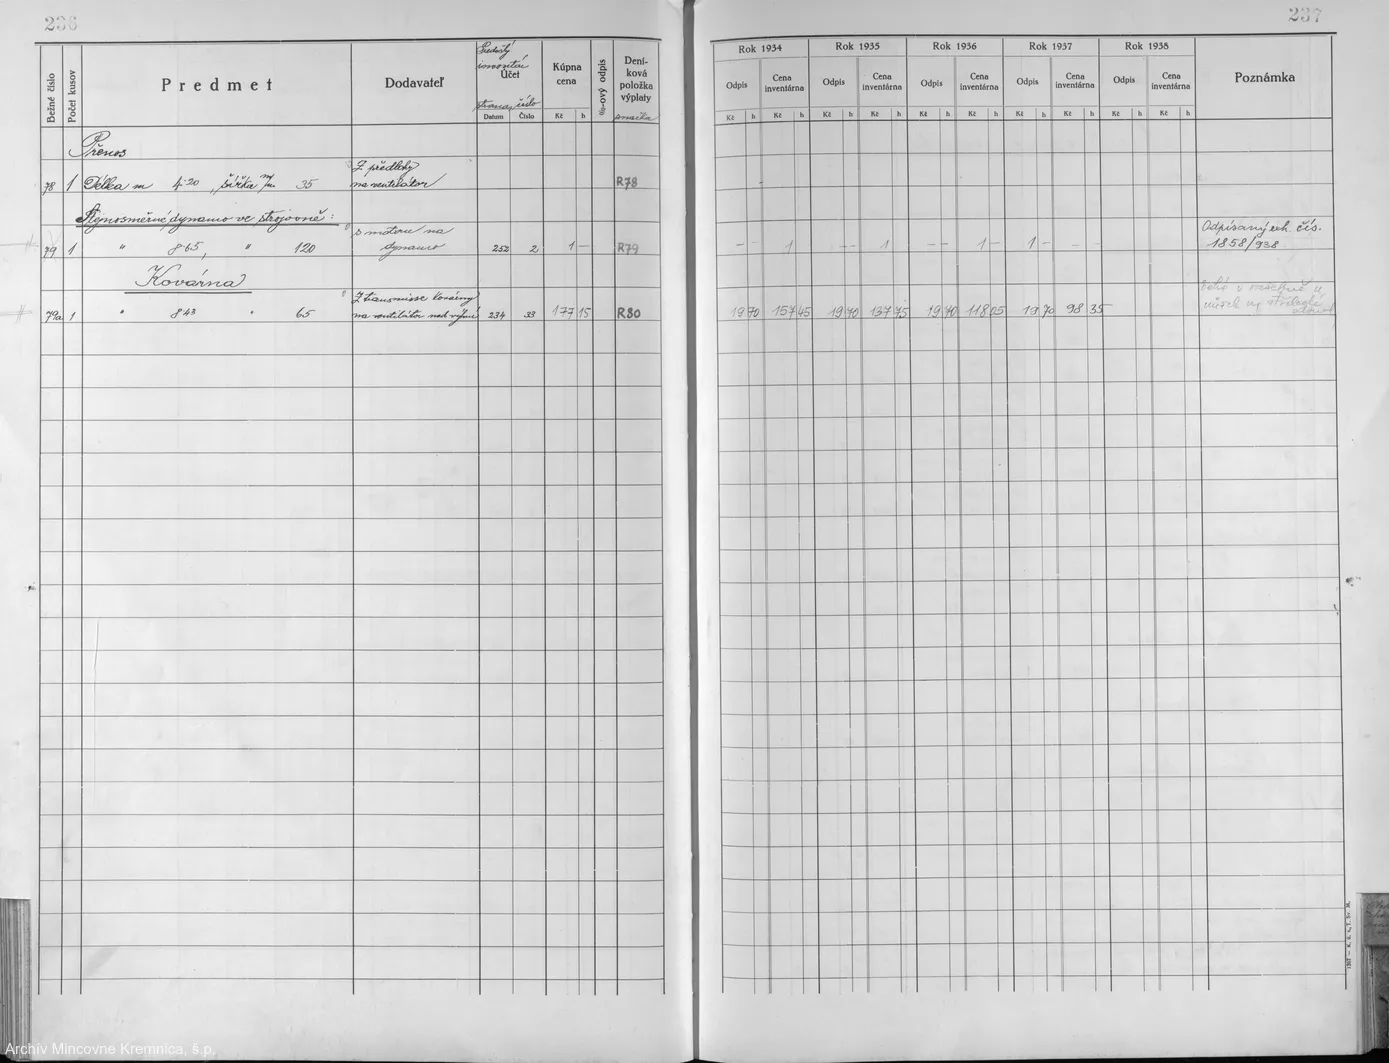 236
Bežné číslo
Počet kusov
Predmet
Dodavateľ
Účet
Datum Číslo
Kúpna cena
Kč h
%-ový odpis
Deníková položka výplaty
značka
Přenos
78 1 Délka m 4·20, šířka m/m 35 Z předlohy na ventilátor R78
Stejnosměrné dynamo ve strojovně:
79 1 " 8·65, " 120 s motoru na dynamo 252 2 1 — R79
Kovárna
79a 1 " 8·43 " 65 Z transmisse kovárny na ventilátor nad výhní 234 33 177 15 R80
237
Rok 1934 Rok 1935 Rok 1936 Rok 1937 Rok 1938
Odpis Cena inventárna Odpis Cena inventárna Odpis Cena inventárna Odpis Cena inventárna Odpis Cena inventárna
Poznámka
Kč h Kč h Kč h Kč h Kč h Kč h Kč h Kč h Kč h Kč h
— — 1 — — 1 — — 1 — 1 — — Odpísaný
čís.
1858/938
19 70 157 45 19 70 137 75 19 70 118 05 19 70 98 35
Archív Mincovne Kremnica, š.p.